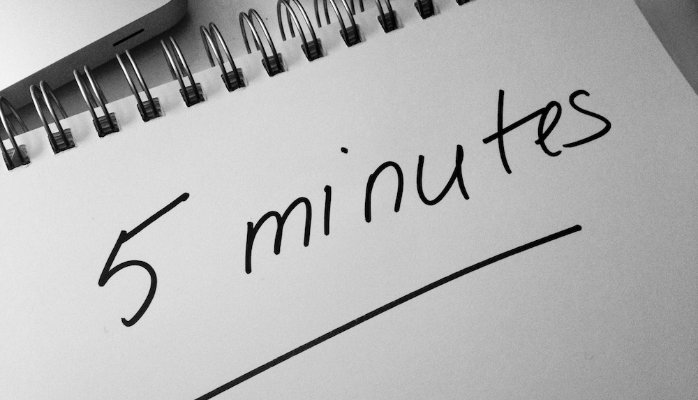 5 minutes